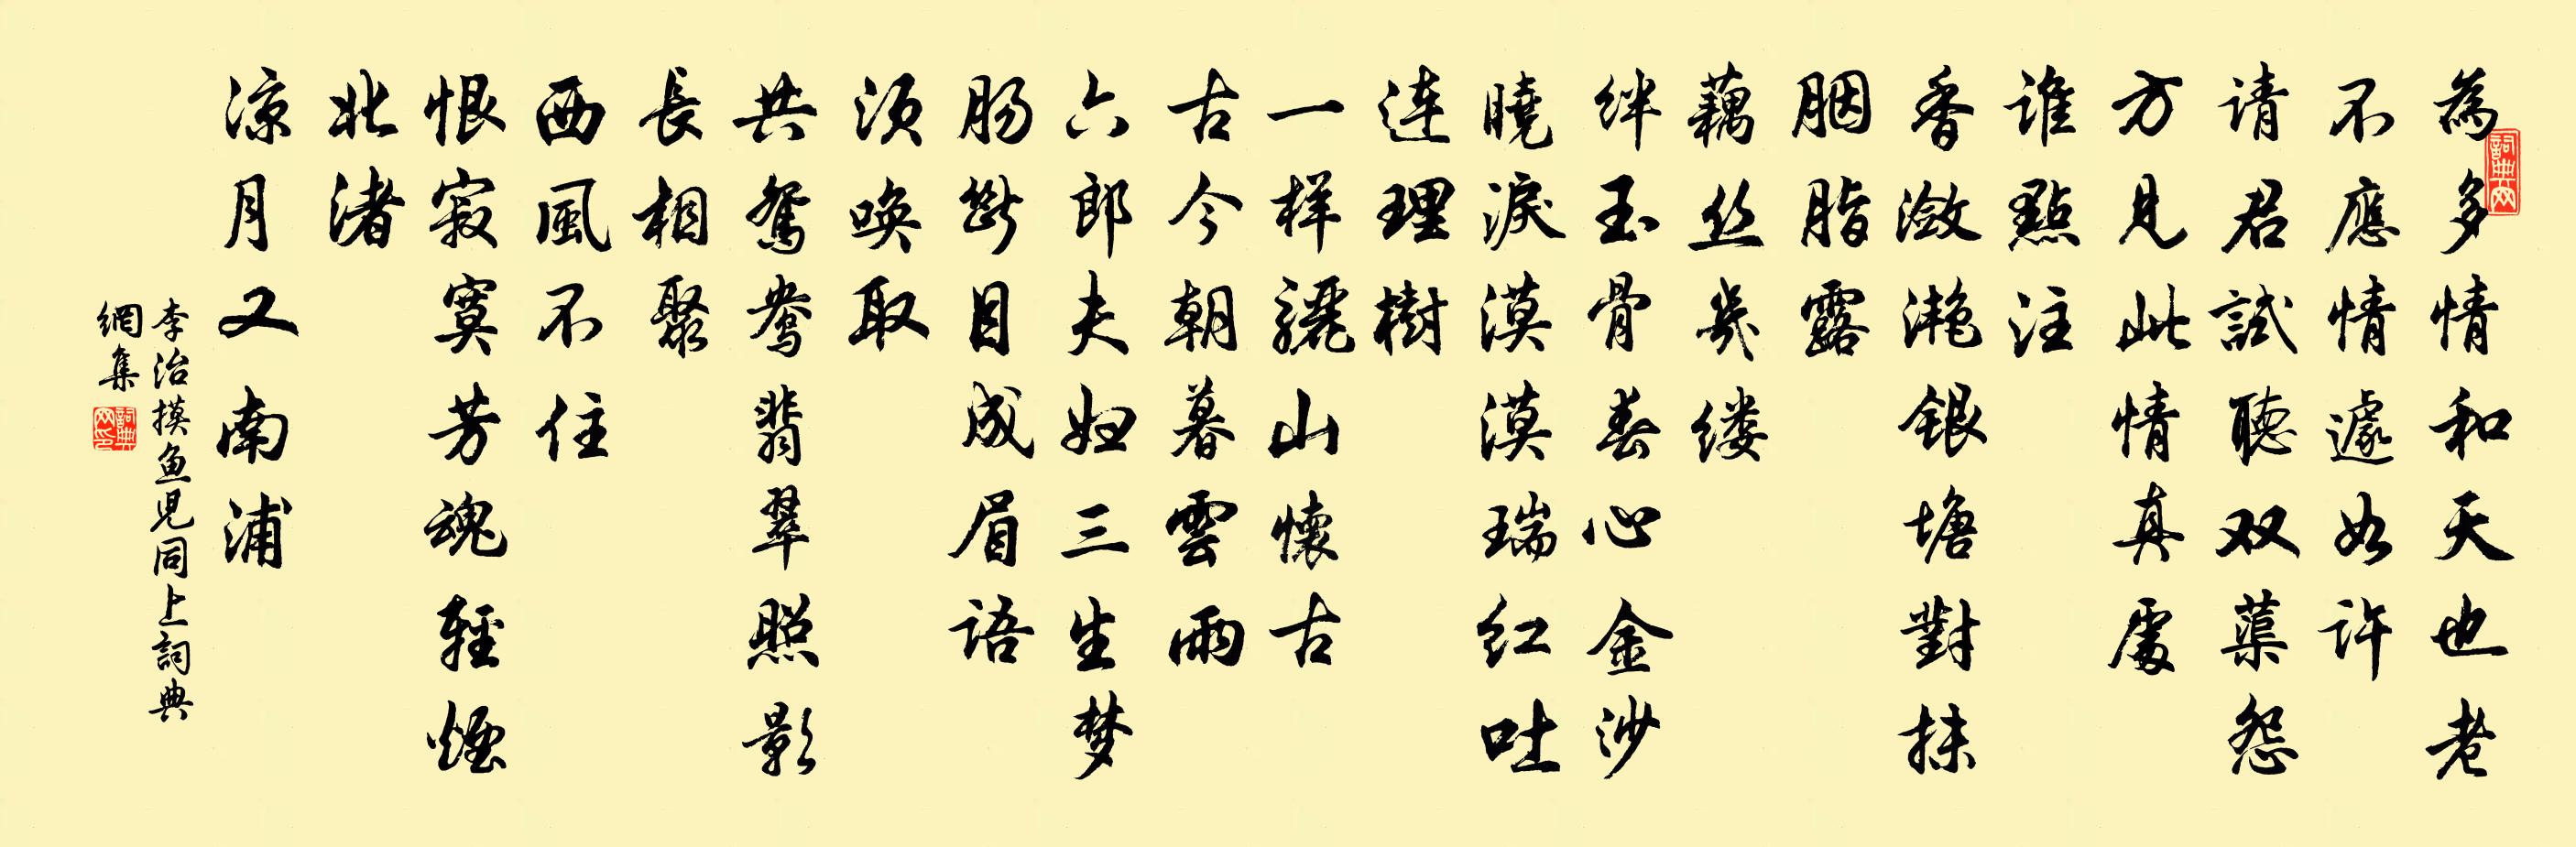 為多情和天也老
不應情遽如许
请君試聽双蕖怨
方見此情真處
谁點注
香瀲灩銀塘對抹
胭脂露
藕丝幾缕
絆玉骨春心金沙
曉淚漠漠瑞红吐
连理樹
一样驪山懷古
古今朝暮雲雨
六郎夫妇三生梦
肠断目成眉语
须唤取
共鸳鸯翡翠照影
長相聚
西風不住
恨寂寞芳魂輕煙
北渚
凉月又南浦
李治摸鱼児同上詞典
網集
詞典网
詞典网印